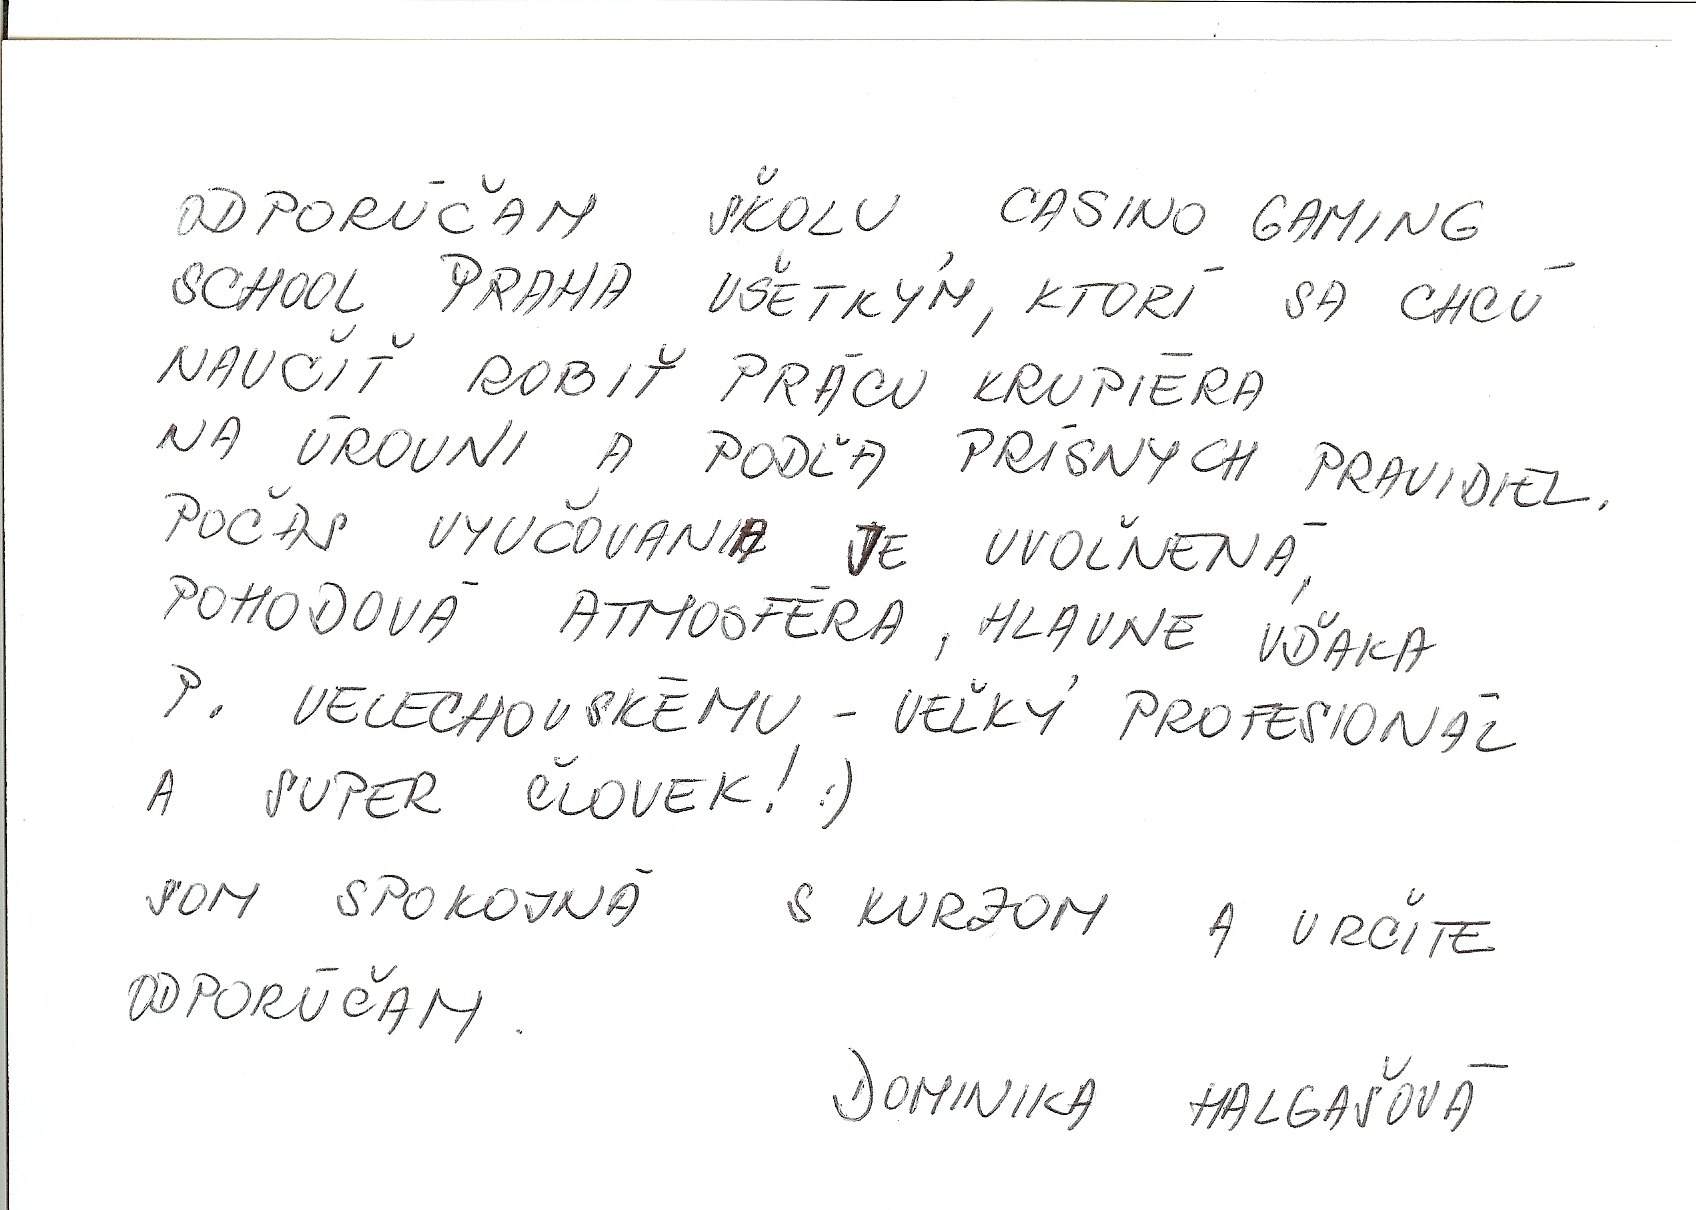 ODPORÚČAM ŠKOLU CASINO GAMING
SCHOOL PRAHA VŠETKÝM, KTORÍ SA CHCÚ
NAUČIŤ ROBIŤ PRÁCU KRUPIÉRA
NA ÚROVNI A PODĽA PRÍSNYCH PRAVIDIEL.
POČAS VYUČOVANIA JE UVOĽNENÁ,
POHODOVÁ ATMOSFÉRA, HLAVNE VĎAKA
P. VELECHOVSKÉMU - VEĽKÝ PROFESIONÁL
A SUPER ČLOVEK! :)
SOM SPOKOJNÁ S KURZOM A URČITE
ODPORÚČAM.
DOMINIKA HALGAŠOVÁ